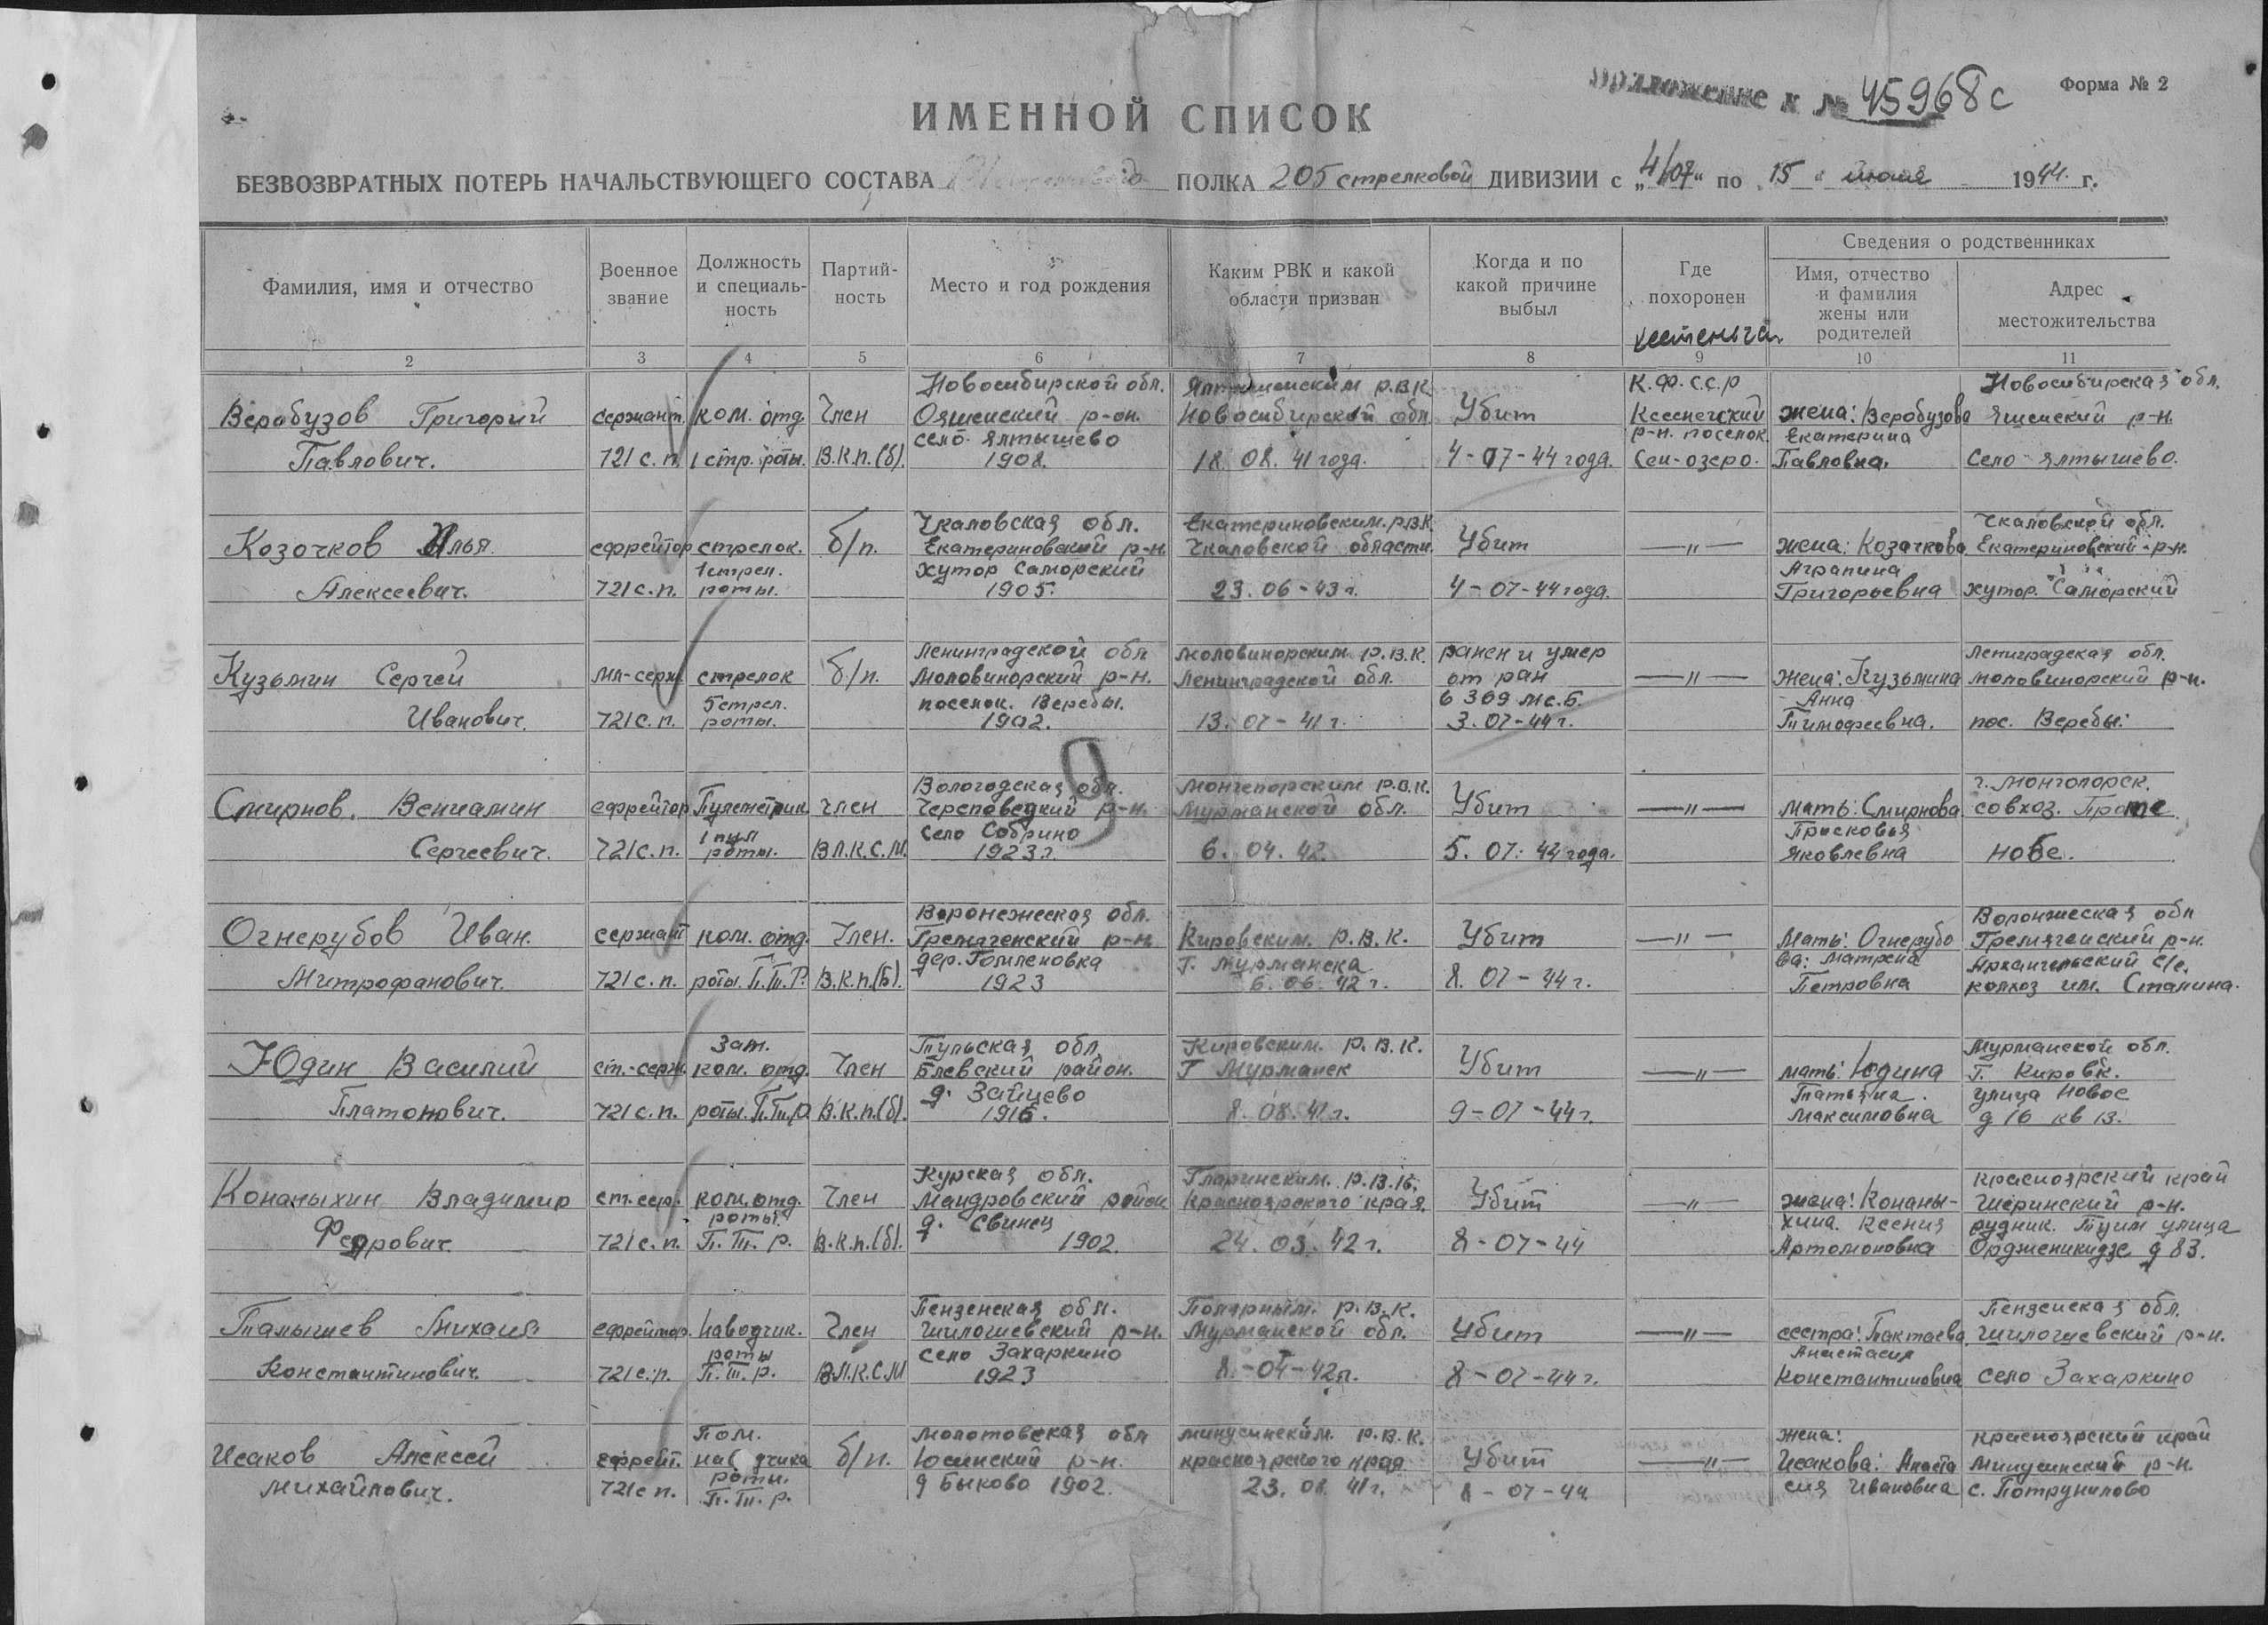 Приложение к № 45968с
Форма № 2
ИМЕННОЙ СПИСОК
БЕЗВОЗВРАТНЫХ ПОТЕРЬ НАЧАЛЬСТВУЮЩЕГО СОСТАВА ПОЛКА 205 стрелковой ДИВИЗИИ с „4/07“ по „15“ июля 1944 г.
Фамилия, имя и отчество
Военное звание
Должность и специаль-ность
Партий-ность
Место и год рождения
Каким РВК и какой области призван
Когда и по какой причине выбыл
Где похоронен
Сведения о родственниках
Имя, отчество и фамилия жены или родителей
Адрес местожительства
2 3 4 5 6 7 8 9 10 11
Верабузов Григорий Павлович.
сержант 721 с.п.
ком. отд. 1 стр. роты.
Член В.К.п.(б).
Новосибирской обл. Ояшенский р-он. село Ялтышево 1908.
р.в.к. Новосибирской обл. 18. 08. 41 года.
Убит 4-07-44 года.
К.Ф.с.с.р р-н. поселок Сен-озеро.
жена: Веробузова Екатерина Павловна.
Новосибирская обл. яшенский р-н. Село Ялтышево.
Козочков Илья Алексеевич.
ефрейтор 721 с.п.
стрелок. 1 стрел. роты.
б/п.
Чкаловская обл. Екатериновский р-н. хутор Саморский 1905.
Екатериновским. р.в.к Чкаловской области. 23. 06-43 г.
Убит 4-07-44 года.
—"—
жена: Козачкова Аграпина Григорьевна
Чкаловской обл. Екатериновский р-н. хутор. Саморский
Кузьмин Сергей Иванович.
мл-серж. 721 с.п.
стрелок 5 стрел. роты.
б/п.
Ленинградской обл Моловинорский р-н. поселок. Веребы. 1902.
моловинорским р.в.к. Ленинградской обл. 13. 07-41 г.
ранен и умер от ран в 369 мс.б. 3. 07-44 г.
—"—
Жена: Кузьмина Анна Тимофеевна.
Ленинградская обл. моловинорский р-н. пос. Веребы.
Смирнов. Вениамин Сергеевич.
ефрейтор 721 с.п.
Пулеметчик. 1 пул роты.
член ВЛ.К.С.М.
Вологодская обл. Череповецкий р-н. Село Собрино 1923 г.
Мончегорским р.в.к. Мурманской обл. 6. 04. 42.
Убит 5. 07. 44 года.
—"—
мать: Смирнова Просковья Яковлевна
г. Монгопорск. совхоз.
Огнерубов Иван. Митрофанович.
сержант 721 с.п.
ком. отд. роты. П.Т.Р.
Член. В.К.п.(Б).
Воронежеская обл. Гремяченский р-н. 1923
Кировским. р.в.к. г. Мурманска 6. 06. 42 г.
Убит 8. 07-44 г.
—"—
Мать: Огнерубова: Матрена Петровна
обл Гремяченский р-н. Архангельский с/с, колхоз им. Сталина.
Юдин Василий Платонович.
ст.-серж. 721 с.п.
Зам. ком. отд. роты. П.Т.р.
Член В.К.п.(б).
Тульская обл Елевский район. д. Зайцево 1916.
Кировским. р.в.к. г Мурманск 8. 08. 41 г.
Убит 9-07-44 г.
—"—
мать: Юдина Татьяна. Максимовна
Мурманской обл. г. Кировск. улица Новое д 16 кв 13.
Конаныхин Владимир Федорович.
ст. сер. 721 с.п.
ком. отд. роты. П.Т.р.
Член В.к.п.(б).
Курская обл. Мандровский район д. Свинец 1902.
р.в.к. Красноярского края. 24. 03. 42 г.
Убит 8-07-44
—"—
жена: Конаны-хина. Ксения Артомоновна
красноярский край Ширинский р-н. рудник. Туим улица Ордженикидзе д 83.
Талышев Михаил Константинович.
ефрейтор. 721 с.п.
Наводчик. роты П.Т.р.
Член ВЛ.К.С.М
Пензенская обл. Шилошевский р-н. село Захаркино 1923
Полярным. р.в.к. Мурманской обл. 8.-04-42 г.
Убит 8-07-44 г.
—"—
сестра: Анастасия Константиновна
Пензенская обл. Шилошевский р-н. село Захаркино
Исаков Алексей михайлович.
ефрейт. 721 с п.
Пом. наводчика роты. П.Т.р.
б/п.
молотовская обл Юсинский р-н. д Быково 1902.
минусинским. р.в.к. красноярского края 23. 08. 41 г.
Убит 8-07-44
—"—
жена: Исакова: Анастасия Ивановна
красноярский край минусинский р-н.